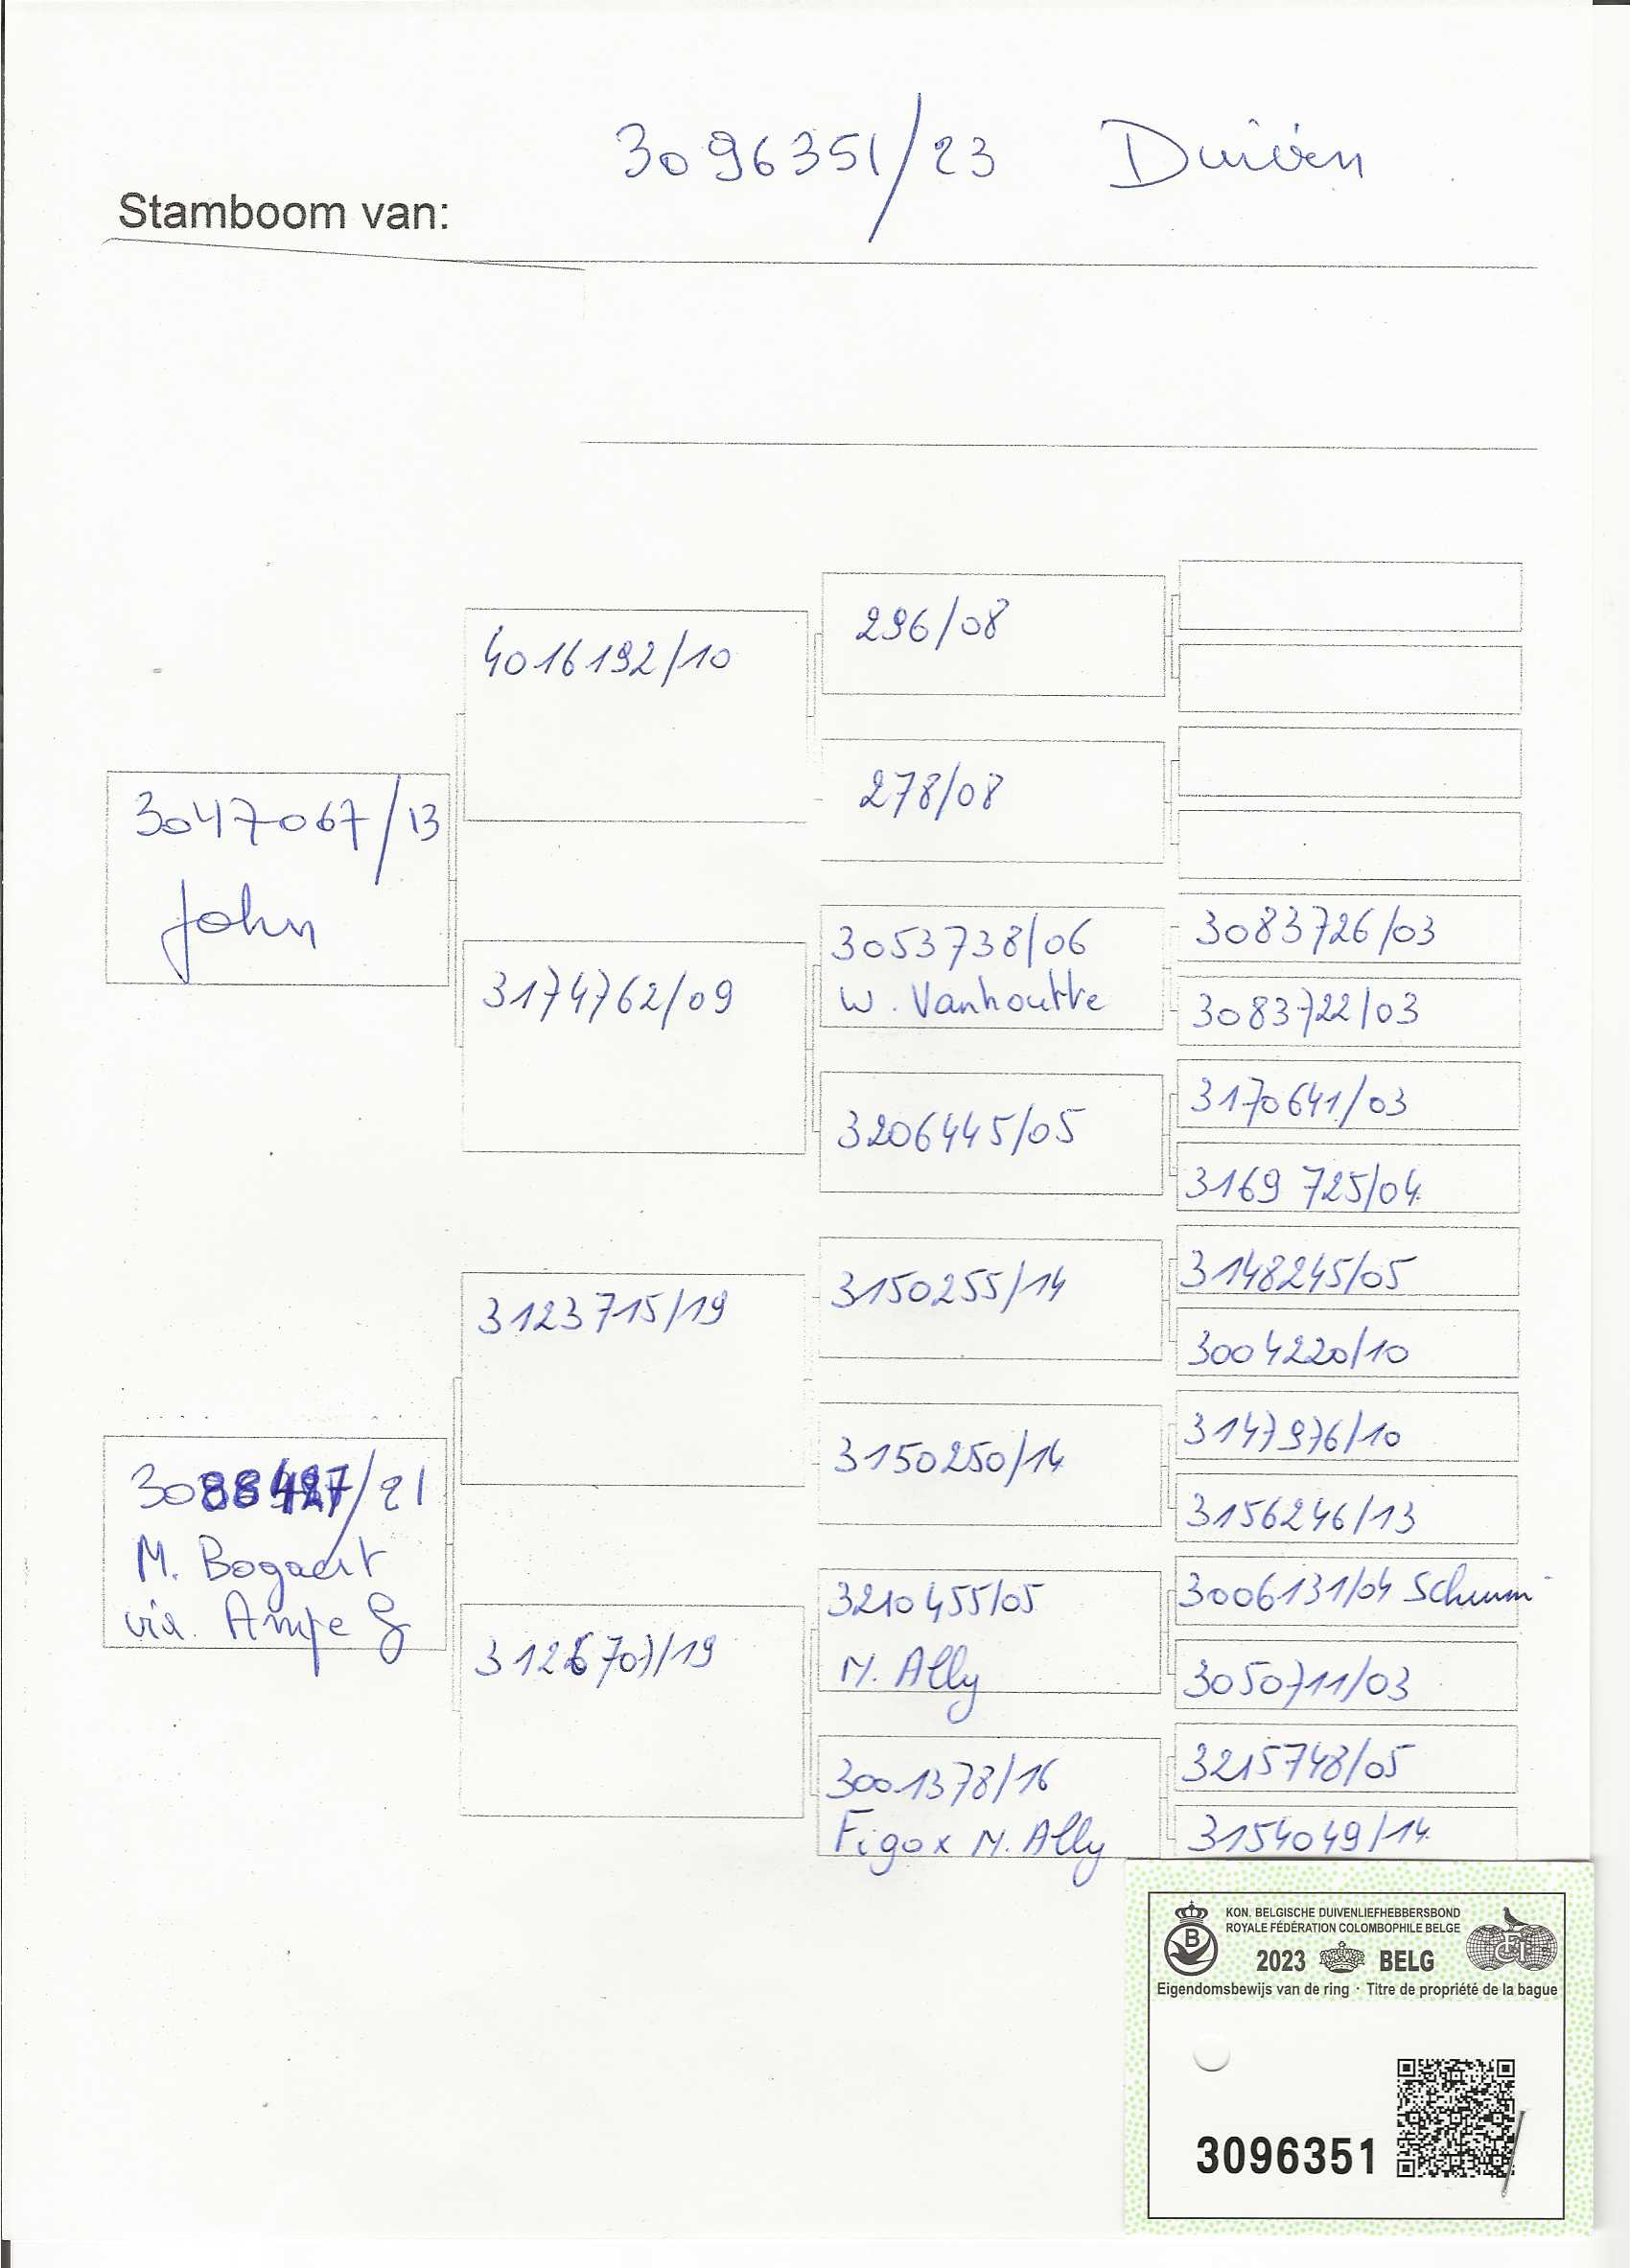 3096351/23 Duivin
Stamboom van:
296/08
4016192/10
278/08
3047067/13
John
3053738/06
W. Vanhoutte
3083726/03
3083722/03
3174762/09
3206445/05
3170641/03
3169 725/04
3150255/14
3148245/05
3004220/10
3123715/19
3150250/14
3147976/10
3156246/13
/21
M. Bogaert
via Ampe G
3210455/05
M. Ally
3006131/04 Schumi
3050711/03
3126707/19
3001378/16
Figo x M. Ally
3215748/05
3154049/14
KON. BELGISCHE DUIVENLIEFHEBBERSBOND
ROYALE FÉDÉRATION COLOMBOPHILE BELGE
2023 BELG
Eigendomsbewijs van de ring · Titre de propriété de la bague
3096351